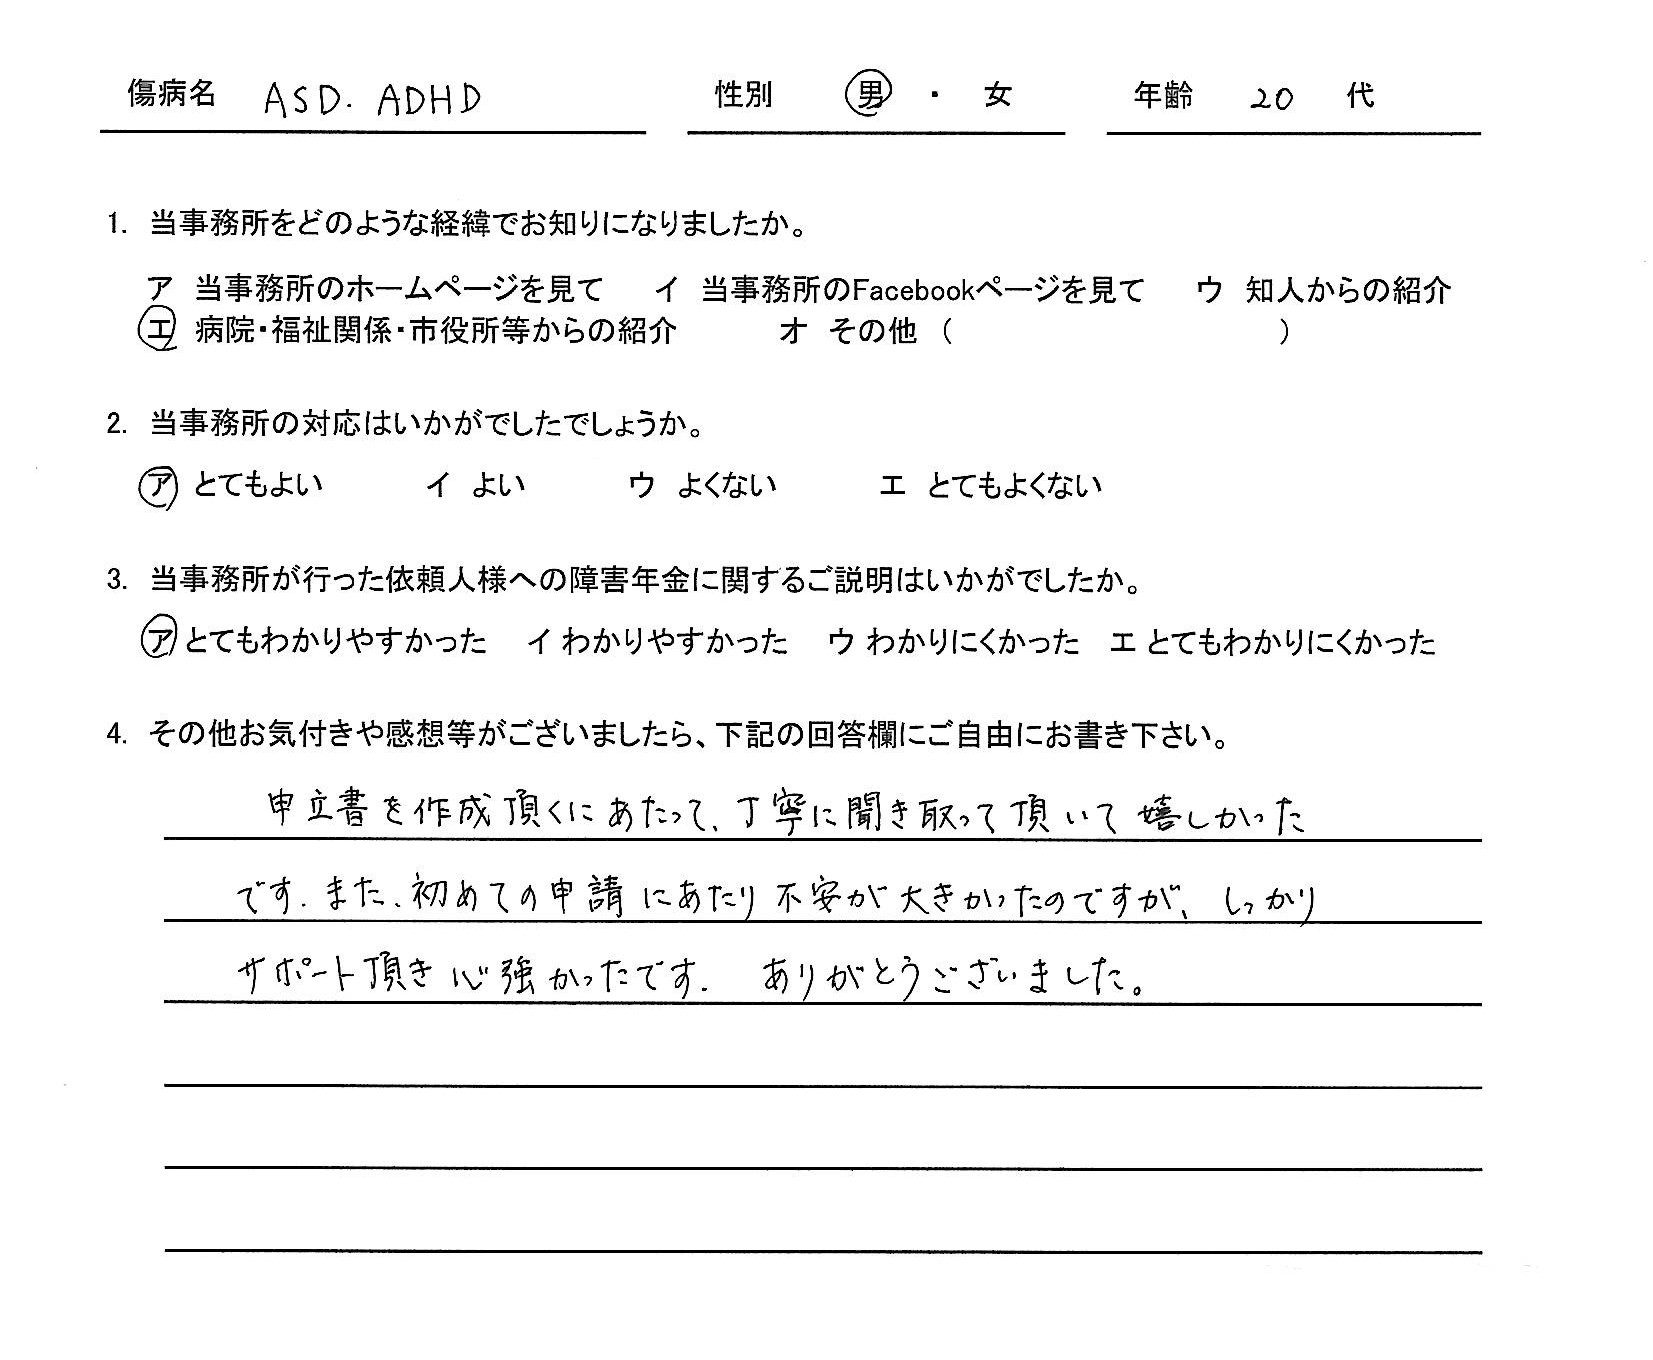 傷病名 ASD. ADHD 性別 男 ・ 女 年齢 20 代
1. 当事務所をどのような経緯でお知りになりましたか。
ア 当事務所のホームページを見て イ 当事務所のFacebookページを見て ウ 知人からの紹介
エ 病院・福祉関係・市役所等からの紹介 オ その他 ( )
2. 当事務所の対応はいかがでしたでしょうか。
ア とてもよい イ よい ウ よくない エ とてもよくない
3. 当事務所が行った依頼人様への障害年金に関するご説明はいかがでしたか。
ア とてもわかりやすかった イ わかりやすかった ウ わかりにくかった エ とてもわかりにくかった
4. その他お気付きや感想等がございましたら、下記の回答欄にご自由にお書き下さい。
申立書を作成頂くにあたって、丁寧に聞き取って頂いて嬉しかった
です. また、初めての申請にあたり不安が大きかったのですが、しっかり
サポート頂き心強かったです. ありがとうございました。